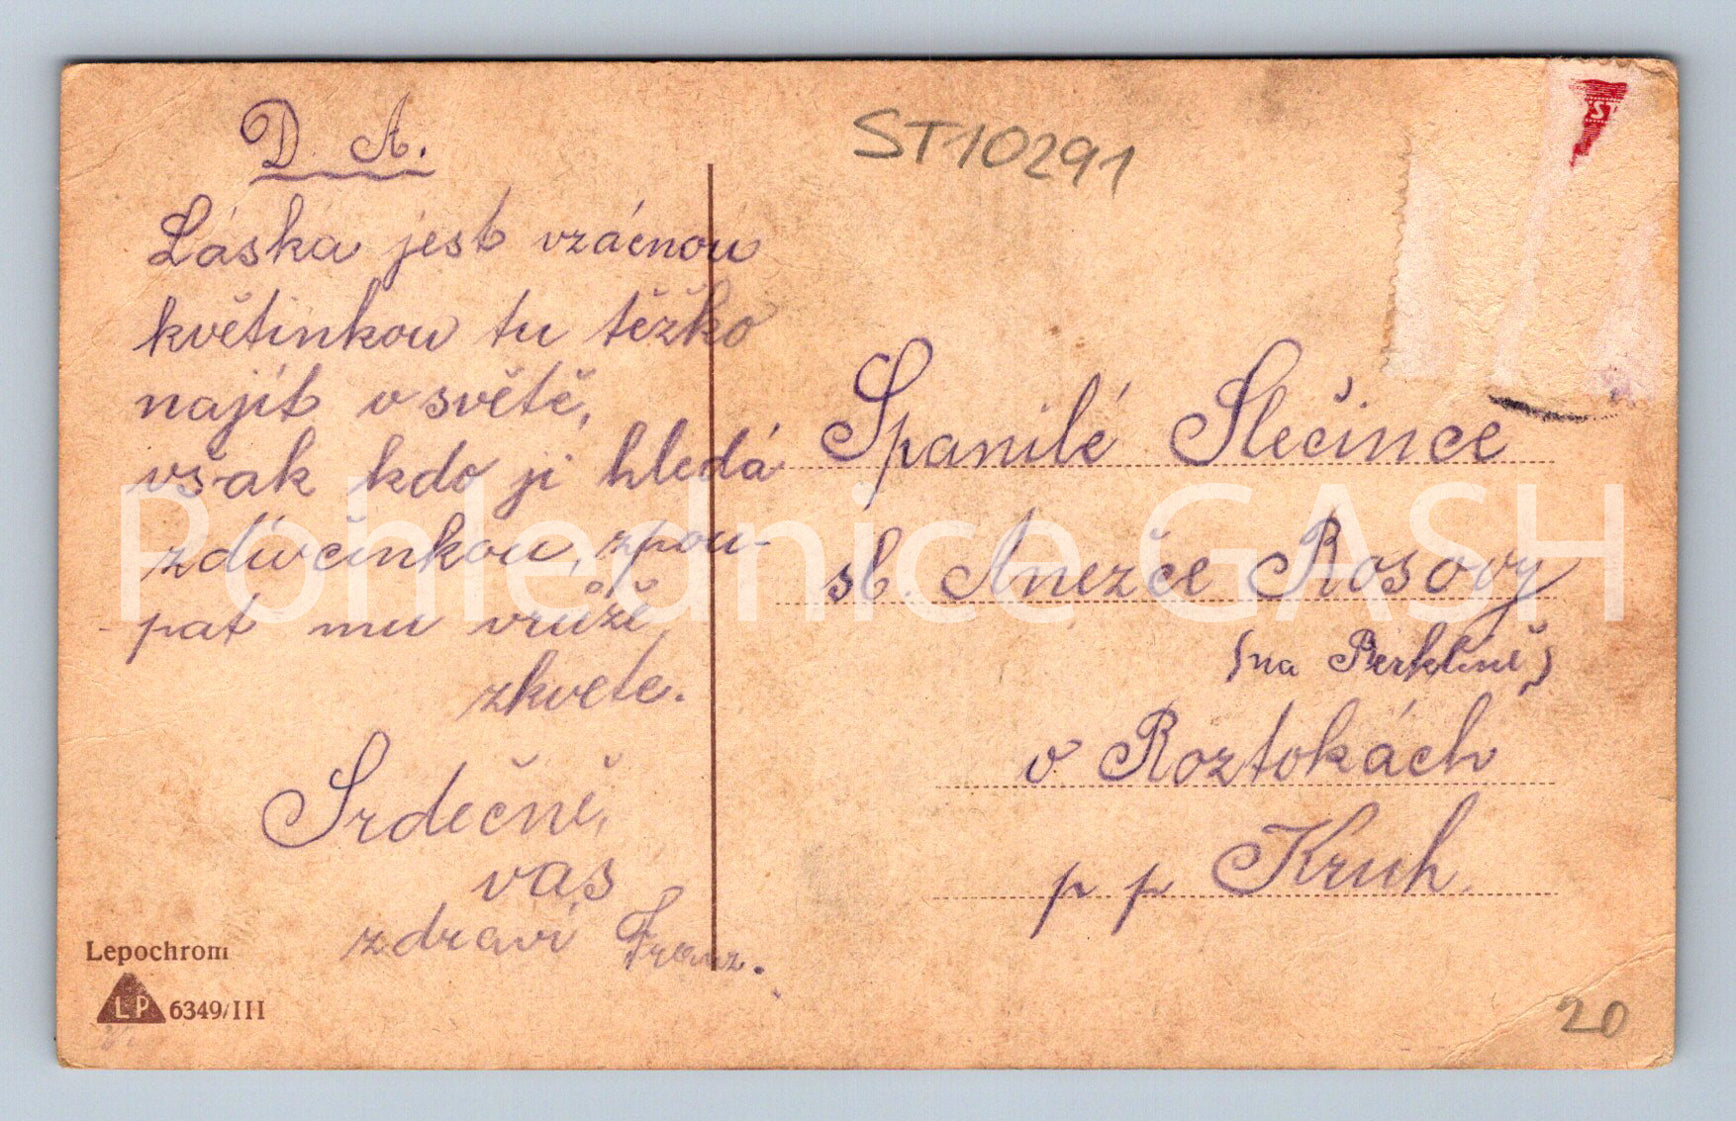 D. A.
Láska jest vzácnou
květinkou tu těžko
najít v světě,
však kdo ji hledá
z dívčinkou, zpou-
pat mu vrůžě,
zkvete.
Srdečně,
vas
zdraví Franz.
Lepochrom
LP 6349/III
ST10291
Spanilé Slečince
sl. Anežce Rosovy
(na Berklině)
v Roztokách
p p Kruh
20
Pohlednice GASH